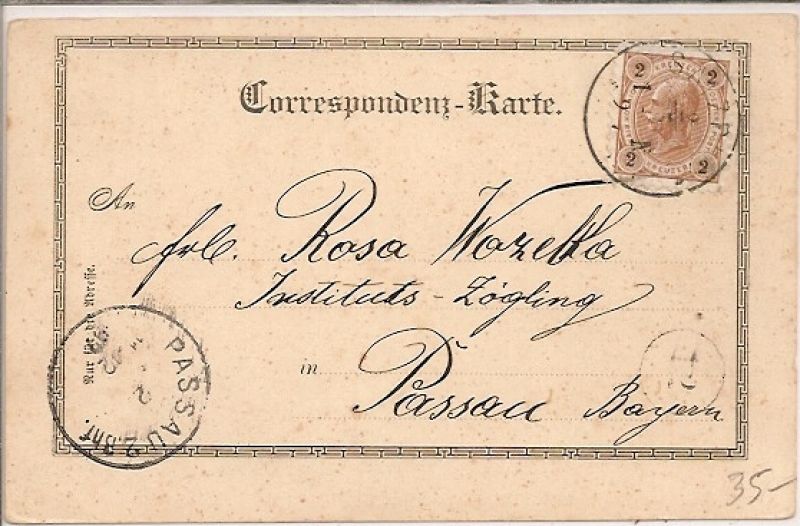 Correspondenz-Karte.
2 2
2 2
An
frl. Rosa
Instituts-Zögling
in Passau Bayern
Nur für die Adresse.
PASSAU 2.Bhf.
35-